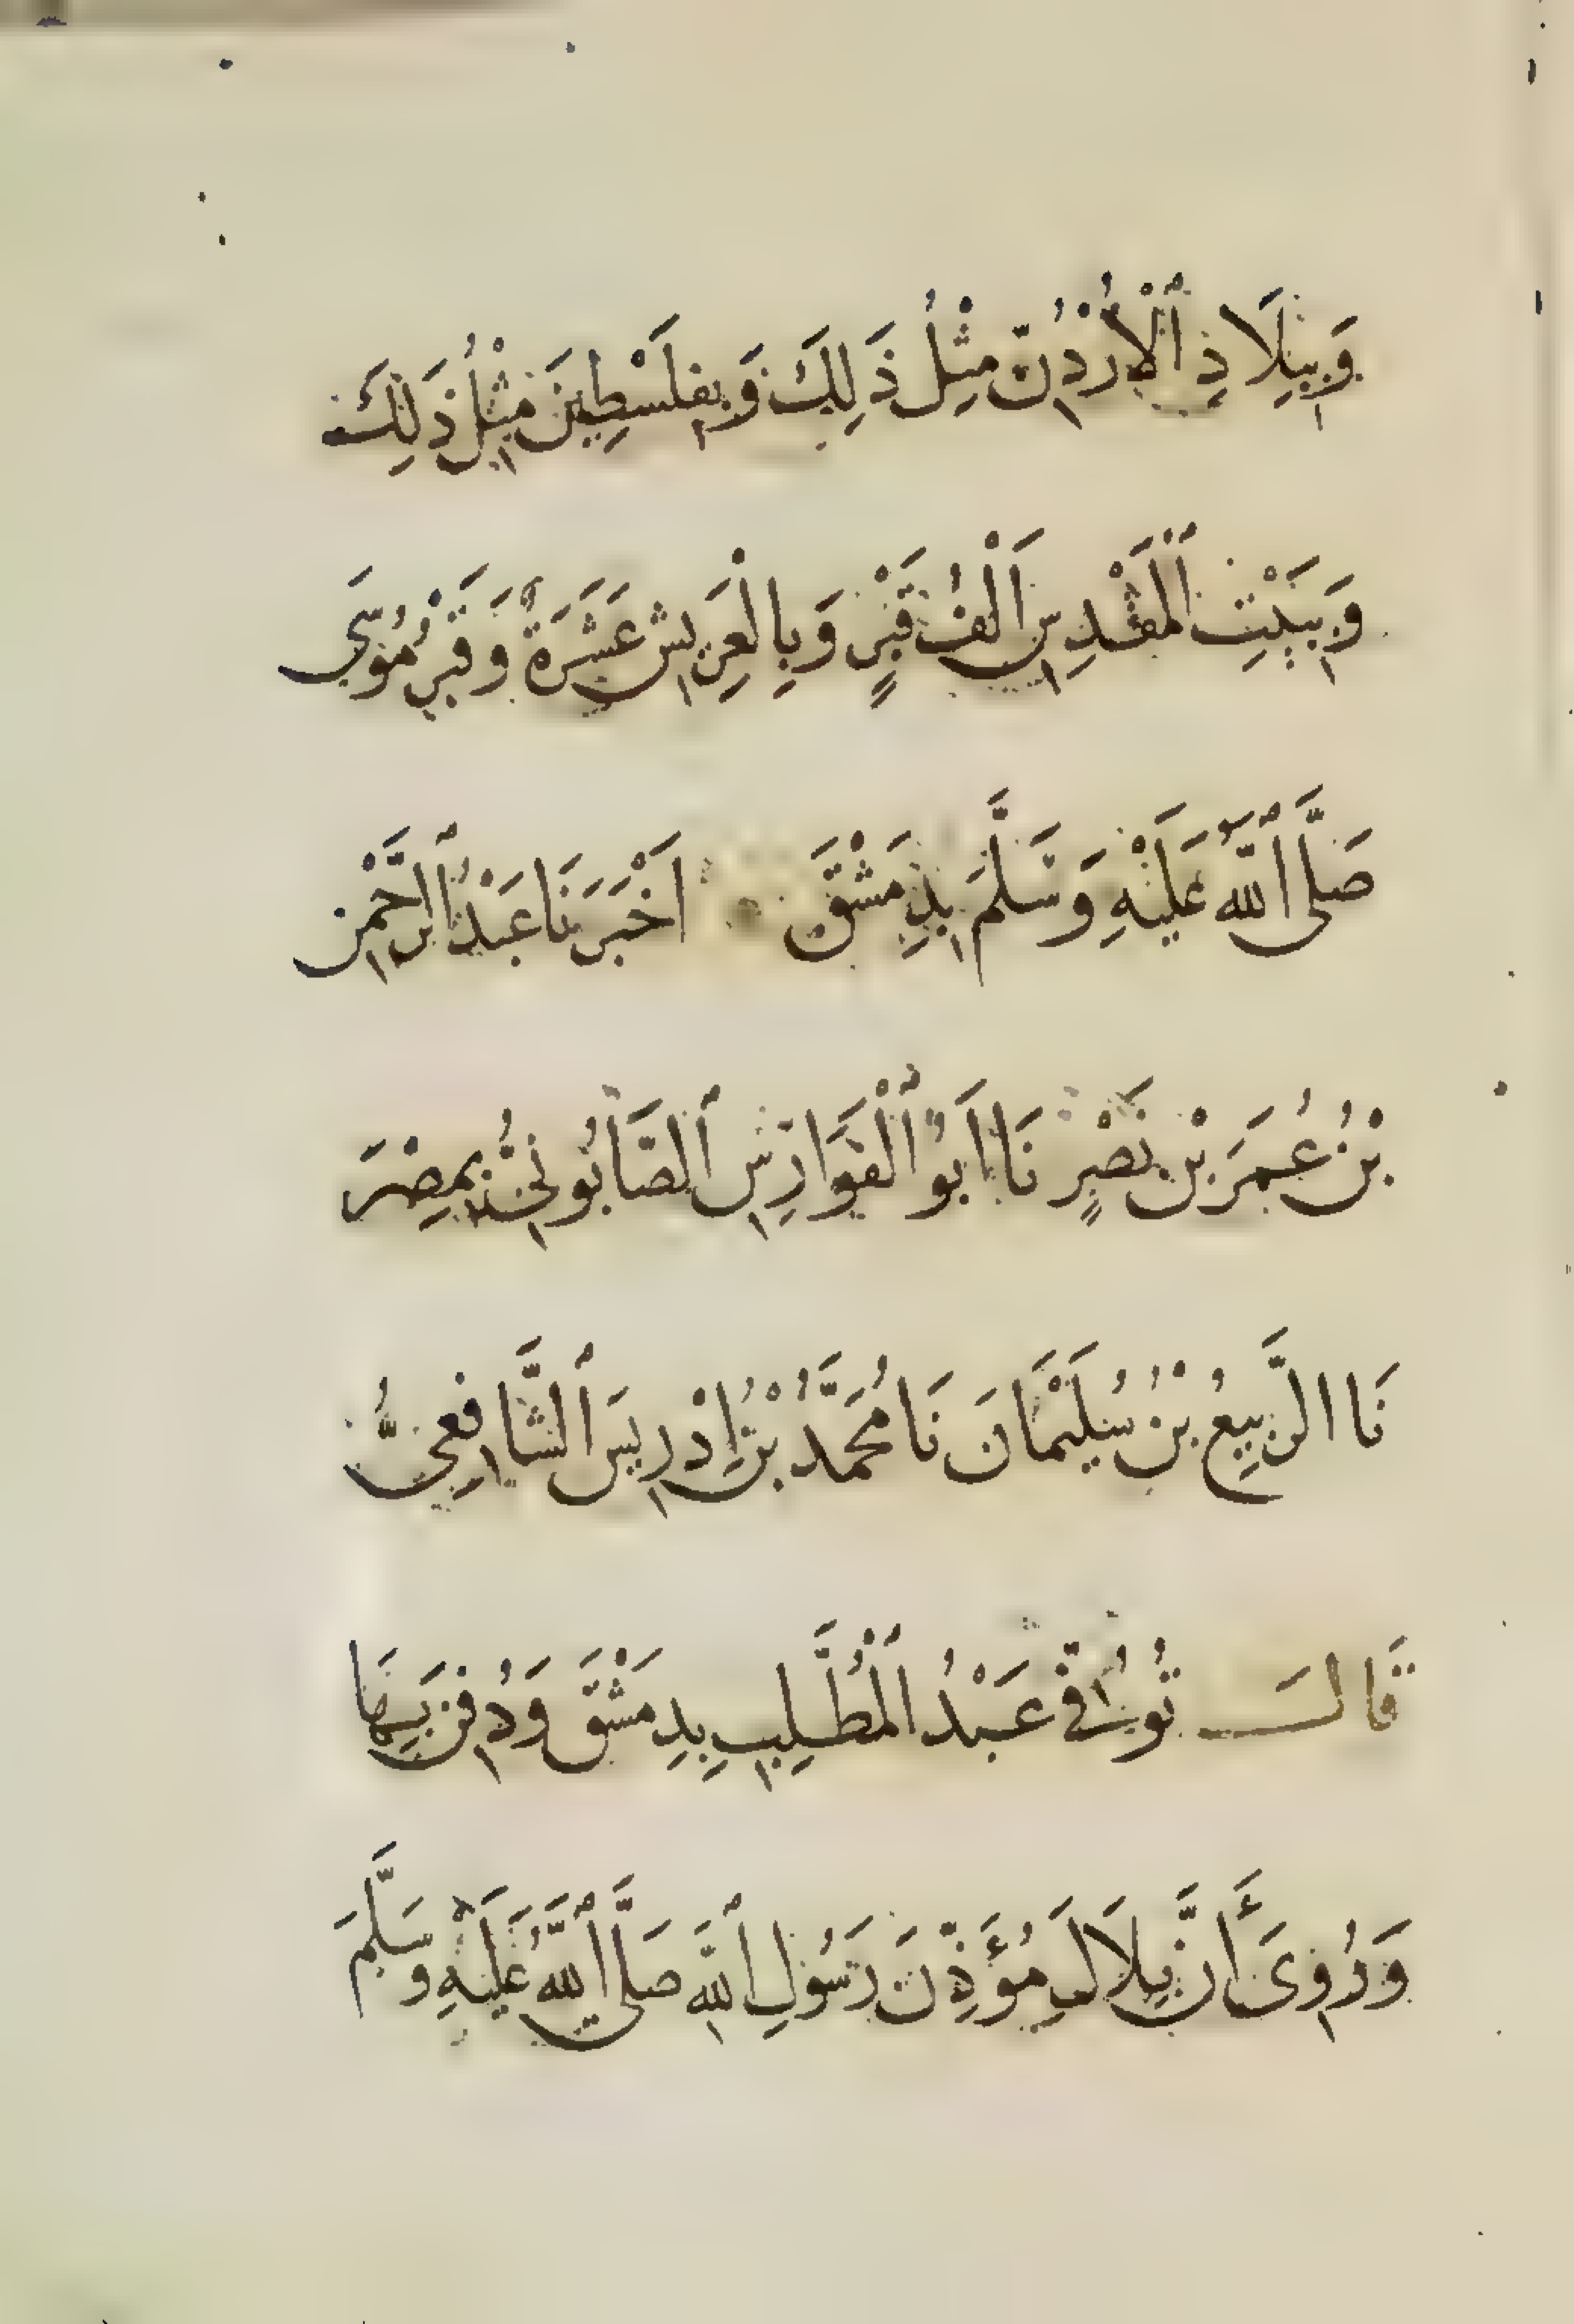 وَبِبِلَادِ ٱلْأُرْدُنّ مِثْلُ ذَلِكَ وَبِفَلَسْطِينَ مِثْلُ ذَلِكَ
وَبِبَيْتِ ٱلْمَقْدِسِ اَلْفُ قَبْرٍ وَبِالْعَرِيشِ عَشَرَةٌ وَقَبْرُ مُوسَى
صَلَّى ٱللَّهُ عَلَيْهِ وَسَلَّمَ بِدِمَشْقَ اَخْبَرَنَا عَبْدُ ٱلرَّحْمٰنِ
بْنُ عُمَرَ بْنِ نَصْرٍ نَا اَبُو ٱلْفَوَارِسِ ٱلصَّابُونِيُّ بِمِصْرَ
نَا الرَّبِيعُ بْنُ سُلَيْمَانَ نَا مُحَمَّدُ بْنُ إِدْرِيسَ ٱلشَّافِعِيُّ
قَالَ تُوُفِّيَ عَبْدُ ٱلْمُطَّلِبِ بِدِمَشْقَ وَدُفِنَ بِهَا
وَرُوِىَ أَنَّ بِلَالَ مُؤَذِّنَ رَسُولِ ٱللَّهِ صَلَّى ٱللَّهُ عَلَيْهِ وَسَلَّمَ